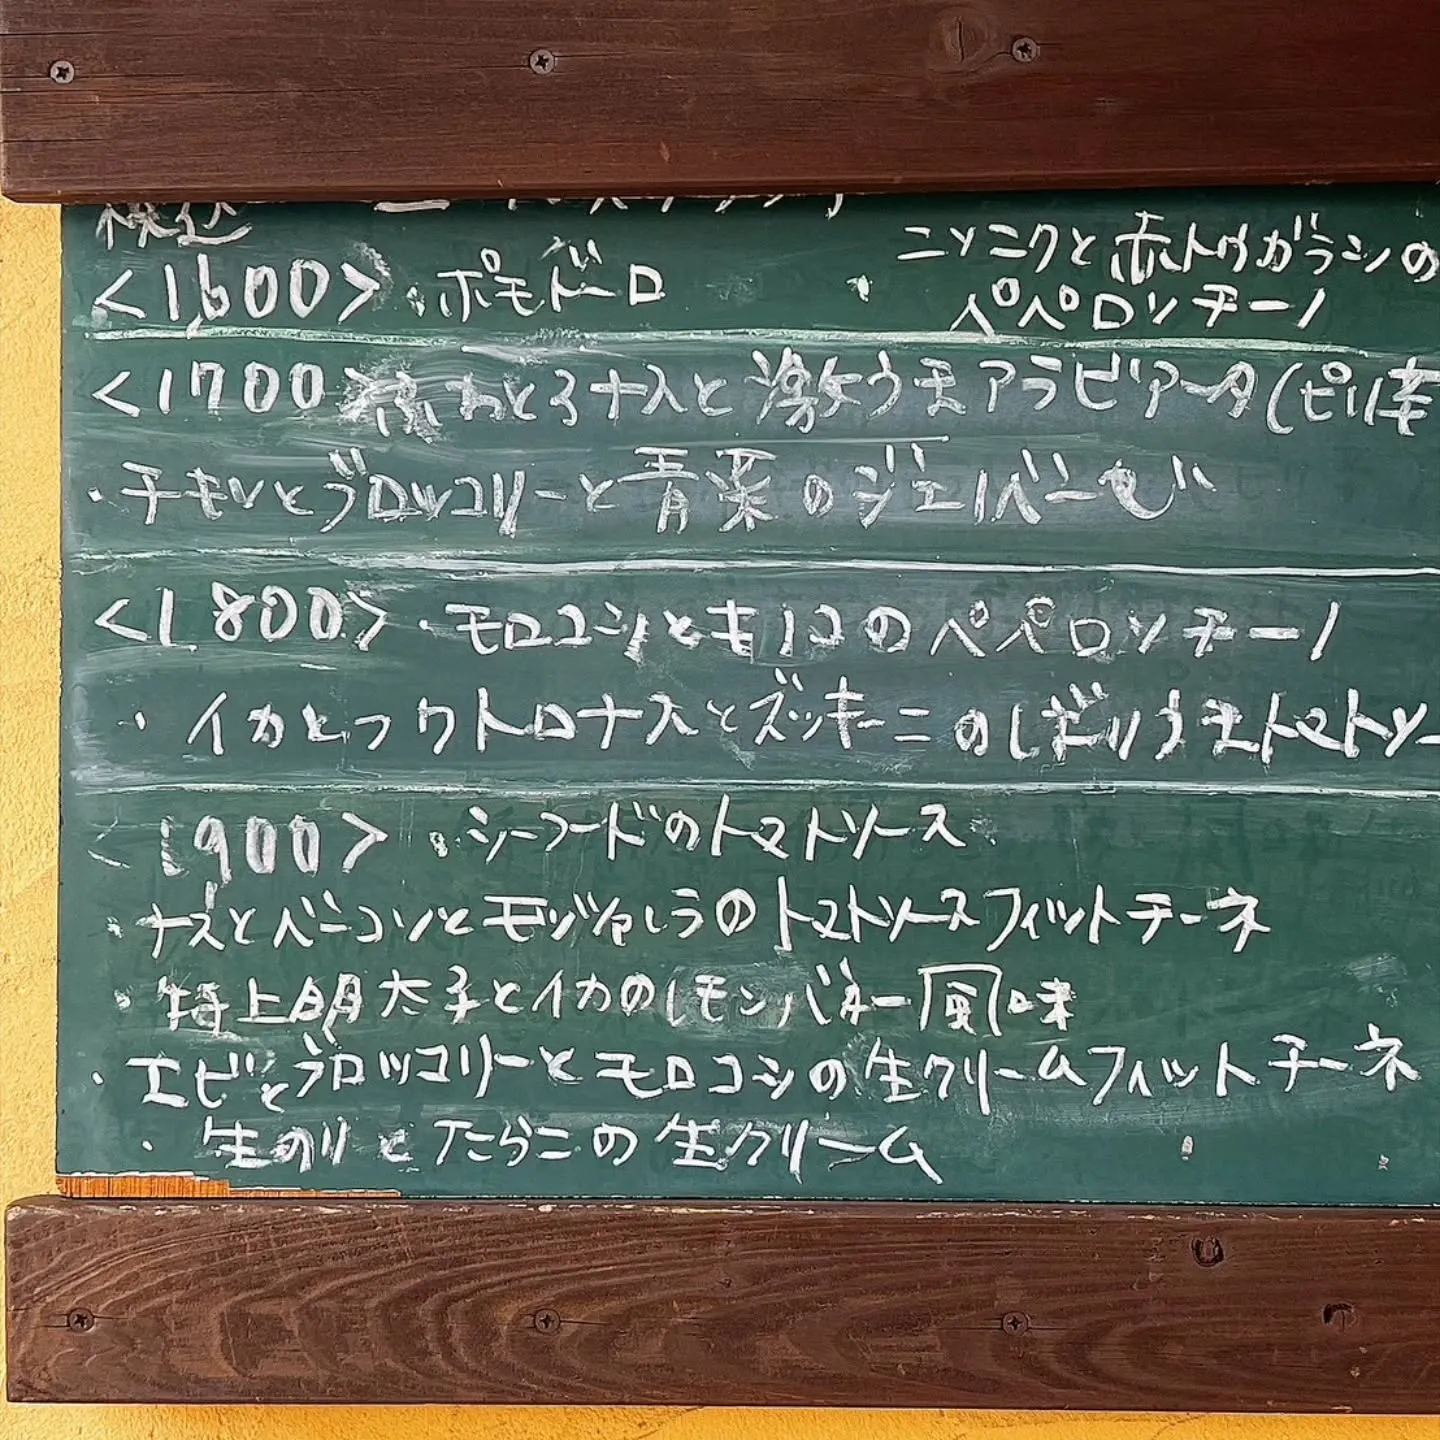 税込
<1,600>・ポモドーロ ・ニンニクと赤トウガラシの
ペペロンチーノ
<1700> とろナスと激うまアラビアータ(ピリ辛
・チキンとブロッコリーと青菜のジェノベーゼ
<1800>・モロコシとキノコのペペロンチーノ
・イカとフワトロナスとズッキーニのしぼりうまトマトソー
1900>・シーフードのトマトソース
・ナスとベーコンとモッツァレラのトマトソースフィットチーネ
・特上明太子とイカのレモンバター風味
・エビとブロッコリーとモロコシの生クリームフィットチーネ
・生のりとたらこの生クリーム